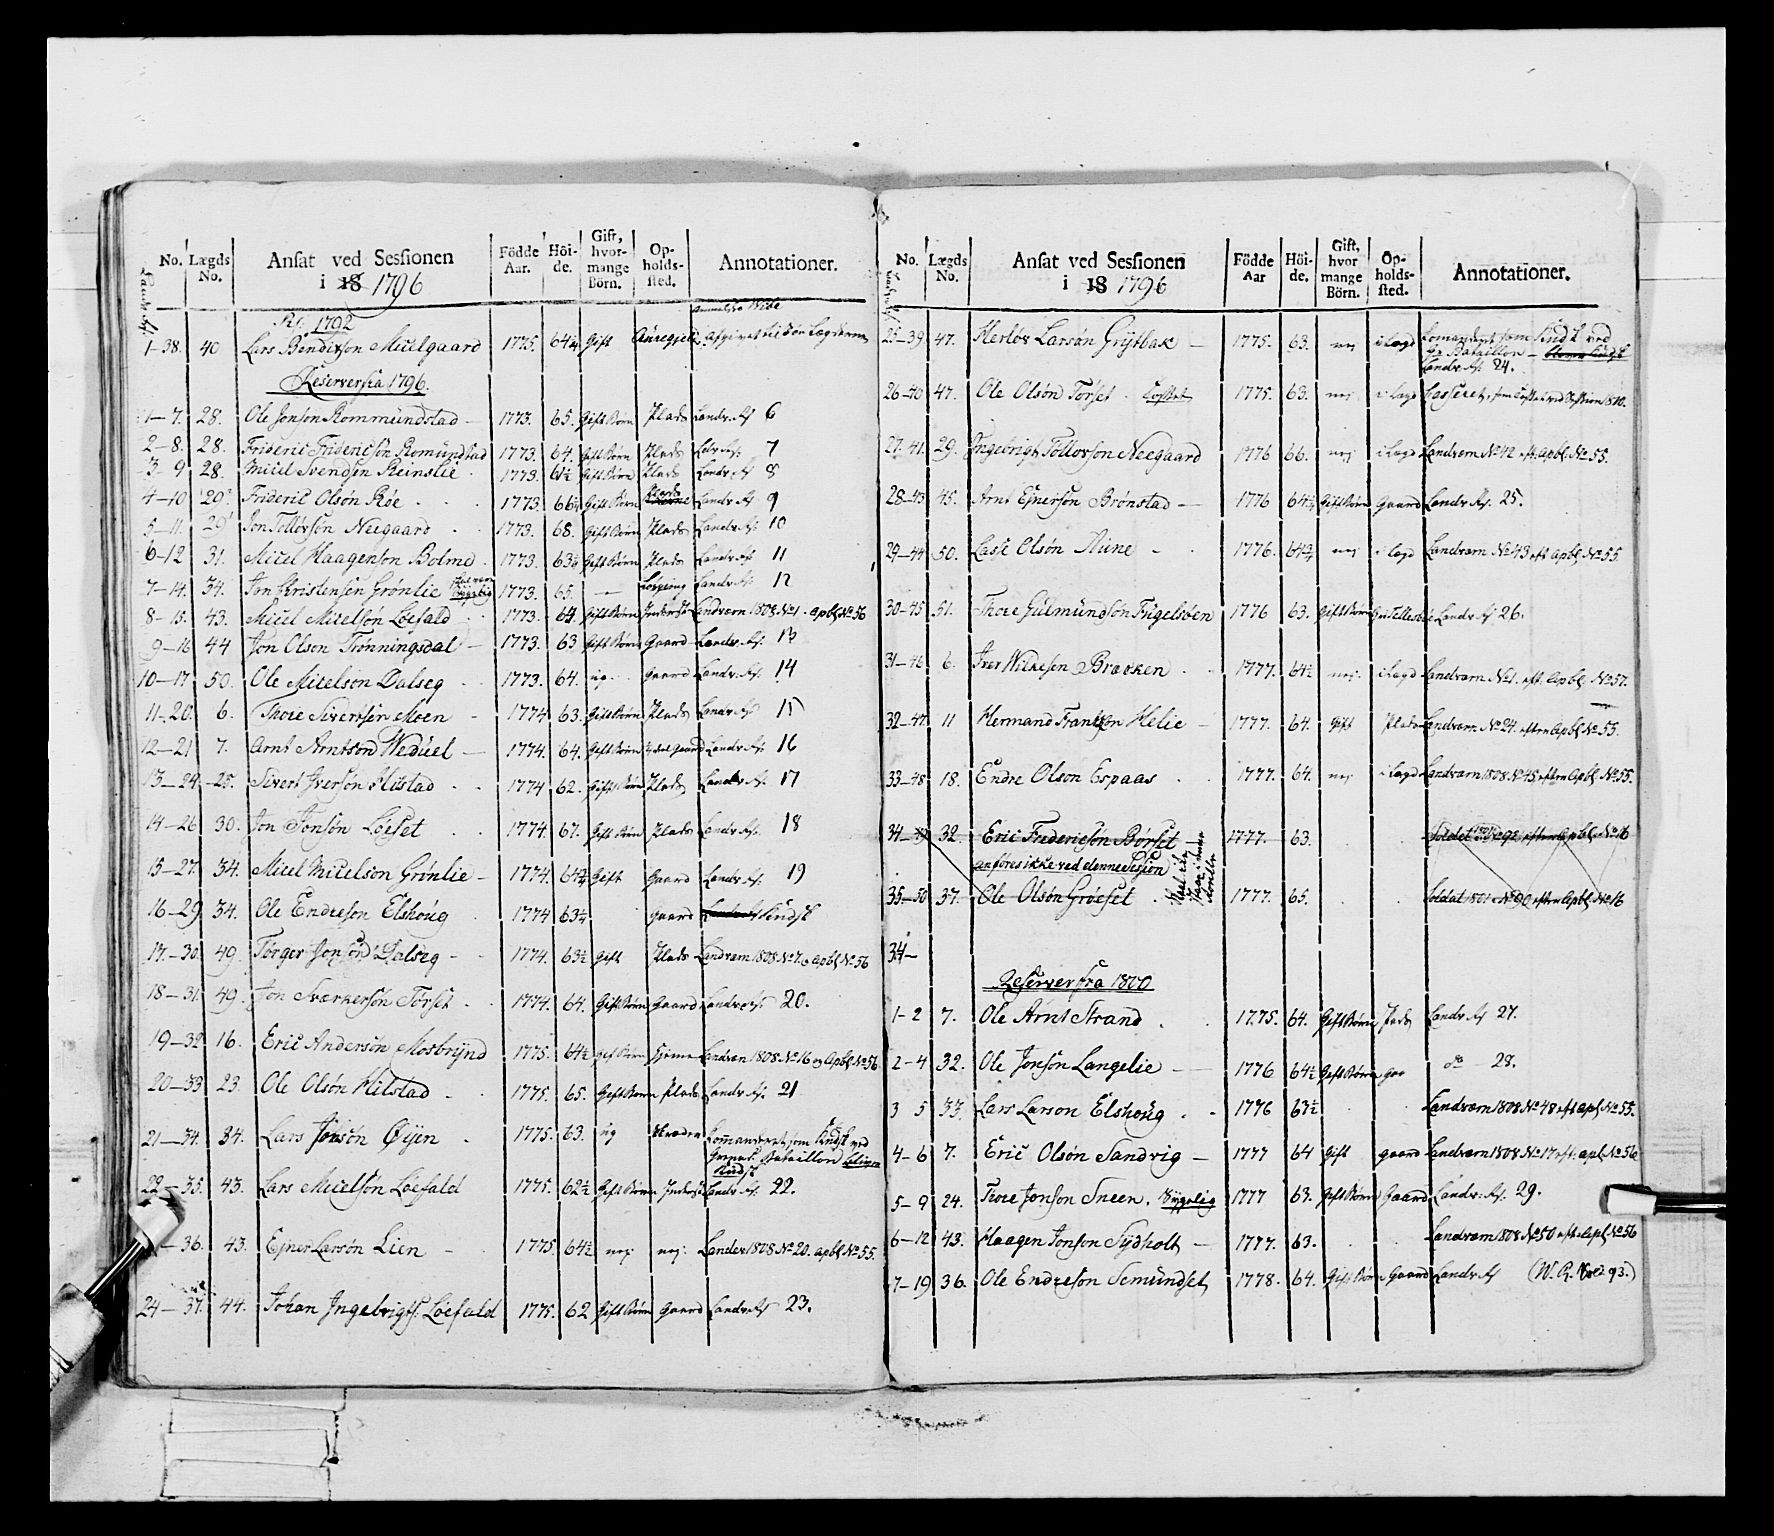 No. Lægds No. Ansat ved Sessionen i 18 1796 Födde Aar. Höi- de. Gift, hvor- mange Börn. Op- holds- sted. Annotationer.
R. 1792
1-38. 40 Lars Bendixson Micelgaard 1775. 64¾ Gift
Reserver fra 1796.
1-7. 28. Ole Jonson Rommundstad 1773. 65. Gift Børn Plads Landv. № 6
2-8. 28. Frideric Fridericsön Romündstad 1773. 64. Gift Børn Plads Ldv. №. 7
3 9 28. Micel Svendsen Reinslie 1773. 61½ Gift Børn Plads Landv № 8
4-10 29. Frideric Olsön Röe 1773. 66¼ Gift Børn Plads Landv № 9
5-11. 29 Jon Tollövsön Neegaard 1773. 68. Gift Børn Plads Landv. № 10
6-12 31. Micel Haagenson Bolme 1773. 63½ Gift Børn Plads Landv № 11
7-14. 34. Jon Christensen Grönlie 1773. 65. — Landv. №. 12
8-15. 43. Micel Micelsön Löefald 1773. 64. Gift Børn Inderst Landværn 1808 No 1. Apbl. No 56
9-16 44 Jon Olson Trönningsdal 1773. 63 Gift Børn Gaard Landv. №. 13
10-17 50. Ole Micelson Dalseg 1773. 64. ug. Gaard Landv. № 14
11-20. 6. Thore Sivertsen Moen 1774 63. Gift Børn Plads Landv. № 15
12-21 7. Arnt Arntson Weduel 1774. 64. Gift Børn Gaard Landv №. 16
13-24. 25. Sivert Iversön Hilstad 1774 62. Gift Børn Plads Landv №. 17
14-26 30. Jon Jonsön Löeset 1774. 67. Gift Børn Plads Landv №. 18
15-27. 34. Micel Micelson Grönlie 1774. 64¾ Gift Gaard Landv №. 19
16-29 34. Ole Endreson Elshoug 1774 63¼ Gaard Landv № Kudsk
17-30. 49. Törger Jonsön Dalseg 1774. 63½ Gift Plads Landværn 1808 No 7. Apbl No 56
18-31. 49. Jon Sværkersön Törset 1774. 64. Gift Børn Gaard Landv №. 20.
19-32 16. Eric Andersön Mosbrynd 1775. 64½ Gift Børn hjeme Landværn 1808 No 16 Apbl No 56
20-33 23. Ole Olsön Hilstad 1775. 65. Gift Børn Plads Landv №. 21
21-34 34. Lars Jonsön Öyen 1775. 63. ug Commanderet som Kudsk ved
Bataillon
Kudsk
22-35. 43. Lars Micelsön Löefald 1775. 62½ Gift Børn Inderst Landv. №. 22.
36. 43. Ejner Larsön Lien 1775 64½ nej nej Landv 1808 No 20. Apbl No 55.
24-37. 44. Johan Ingebrigts. Löefald 1775. 62 Gift Børn Gaard Landv № 23.
No. Lægds No. Ansat ved Sessionen i 18 1796 Födde Aar Höi- de. Gift, hvor mange Börn. Op- holds- sted. Annotationer.
25-39 47. Herlöv Larsön Grytbak 1775. 63. nej i Lægd Comanderet som Kudsk ved
Bataillon
Landv № 24.
26-40 47. Ole Olsön Törset. Casset 1775. 63. nej i Lægd Casseret, som Casset ved Session 1810.
27-41. 29. Ingebrigt Tollovson Neegaard 1776 66. nej i Lægd Landværn No 42 eft. Apbl. No 55.
28-43 45. Arnt Ejnersön Brönstad 1776 64½ Gift Børn Gaard Landv №. 25.
29-44 50. Lasse Olsön Aune 1776. 64¾ nej i Lægd Landværn No 43 eft Apbl No 55.
30-45 51. Thore Gulmundson Fugelsöen 1776 63. Gift Børn Landv № 26.
31-46 6. Iver Wilkesen Bracken 1777. 64½ nej. i Lægd Landværn No 1. eft. Apbl. No 57.
32-47. 11 Hermand Frantzon Helie 1777. 64. Gift Plads Landværn No 24. efter Apbl No 55.
33-48 18. Endre Olson Espaas 1777. 64. nej i Lægd Landværn 1808 No 45 efter Apbl. No 55.
34-49 32. Eric Fridericsön Börset 1777. 63. Soldat No 92 efter Apbl. No 16
anföres ikke ved denne Session
35-50 37. Ole Olsön Gröeset 1777. 65. Soldat 1801 No 90 efter Apbl. No 16
34-
Reserver fra 1800
1-2 7. Ole Arnt Strand 1775. 64. Gift Børn Plads Landv № 27.
2-4 32. Ole Jonsön Langelie 1776 64½ Gift Børn Gaa do 28.
3 5 33. Lars Larson Elshoug 1776 63½ Landværn 1808 No 48 eft Apbl No 55.
4-6 7. Eric Olsön Sandvig 1777 64 Gift Gaard Landværn 1808 No 17 eft. Apbl No 56
5-9 24. Thore Jonson Sneen. Sÿgelig 1777 63. Gift Børn Gaard Landv. №. 29.
6-12 43. Haagen Jonson Sydholt 1777. 63. Landværn 1808 No 50 eft. Apbl No 56
7-19 36. Ole Endreson Semundset 1778. 64. Gift Børn Gaard Landv № (W. R. 93.)